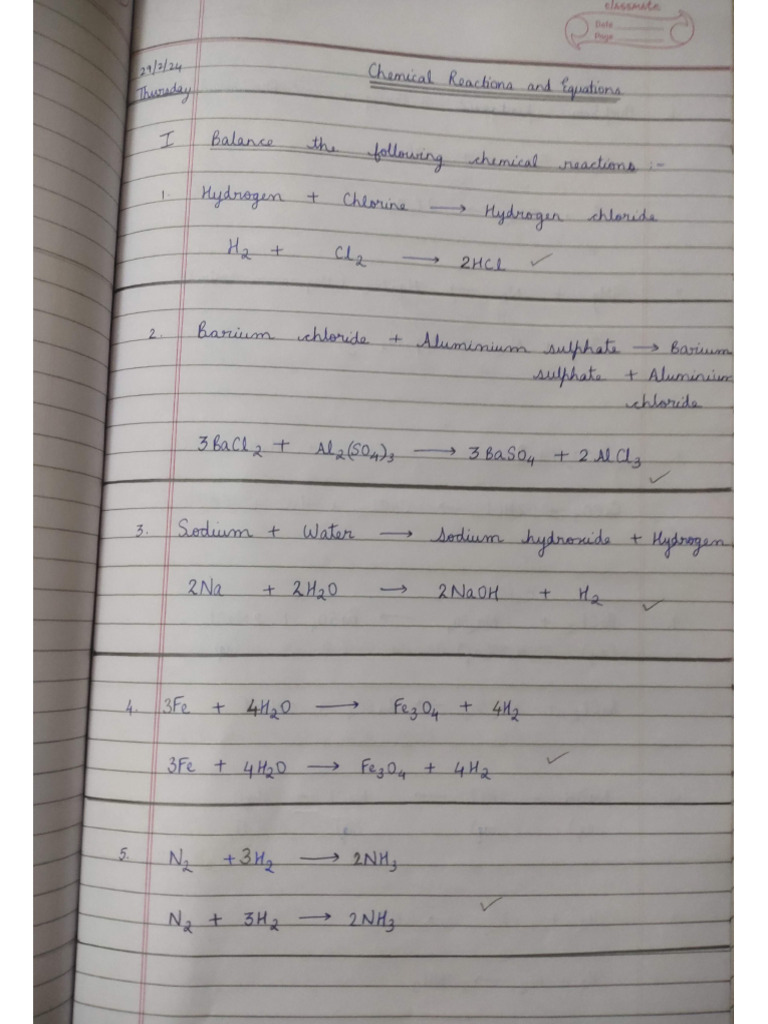 classmate
Date
Page
29/2/24
Thursday
Chemical Reactions and Equations
I Balance the following chemical reactions :-
1. Hydrogen + Chlorine → Hydrogen chloride
H₂ + Cl₂ → 2HCl ✓
2. Barium chloride + Aluminium sulphate → Barium
sulphate + Aluminium
chloride
3BaCl₂ + Al₂(SO₄)₃ → 3BaSO₄ + 2AlCl₃ ✓
3. Sodium + Water → Sodium hydroxide + Hydrogen
2Na + 2H₂O → 2NaOH + H₂ ✓
4. 3Fe + 4H₂O → Fe₃O₄ + 4H₂
3Fe + 4H₂O → Fe₃O₄ + 4H₂ ✓
5. N₂ + 3H₂ → 2NH₃
N₂ + 3H₂ → 2NH₃ ✓